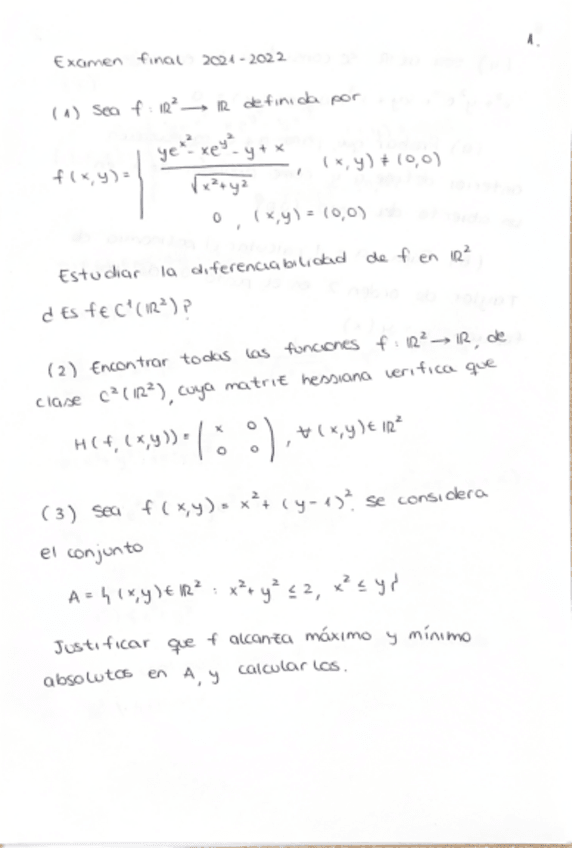 1.
Examen final 2021-2022
(1) Sea f: ℝ² → ℝ definida por
f(x,y) = | (ye^{x²} - xe^{y²} - y + x) / √(x²+y²) , (x,y) ≠ (0,0)
0 , (x,y) = (0,0)
Estudiar la diferenciabilidad de f en ℝ²
¿Es f ∈ C¹(ℝ²)?
(2) Encontrar todas las funciones f: ℝ² → ℝ, de
clase C²(ℝ²), cuya matriz hessiana verifica que
H(f, (x,y)) = ( x 0 ; 0 0 ) , ∀ (x,y) ∈ ℝ²
(3) Sea f(x,y) = x² + (y-1)². Se considera
el conjunto
A = { (x,y) ∈ ℝ² : x² + y² ≤ 2, x² ≤ y }
Justificar que f alcanza máximo y mínimo
absolutos en A, y calcularlos.